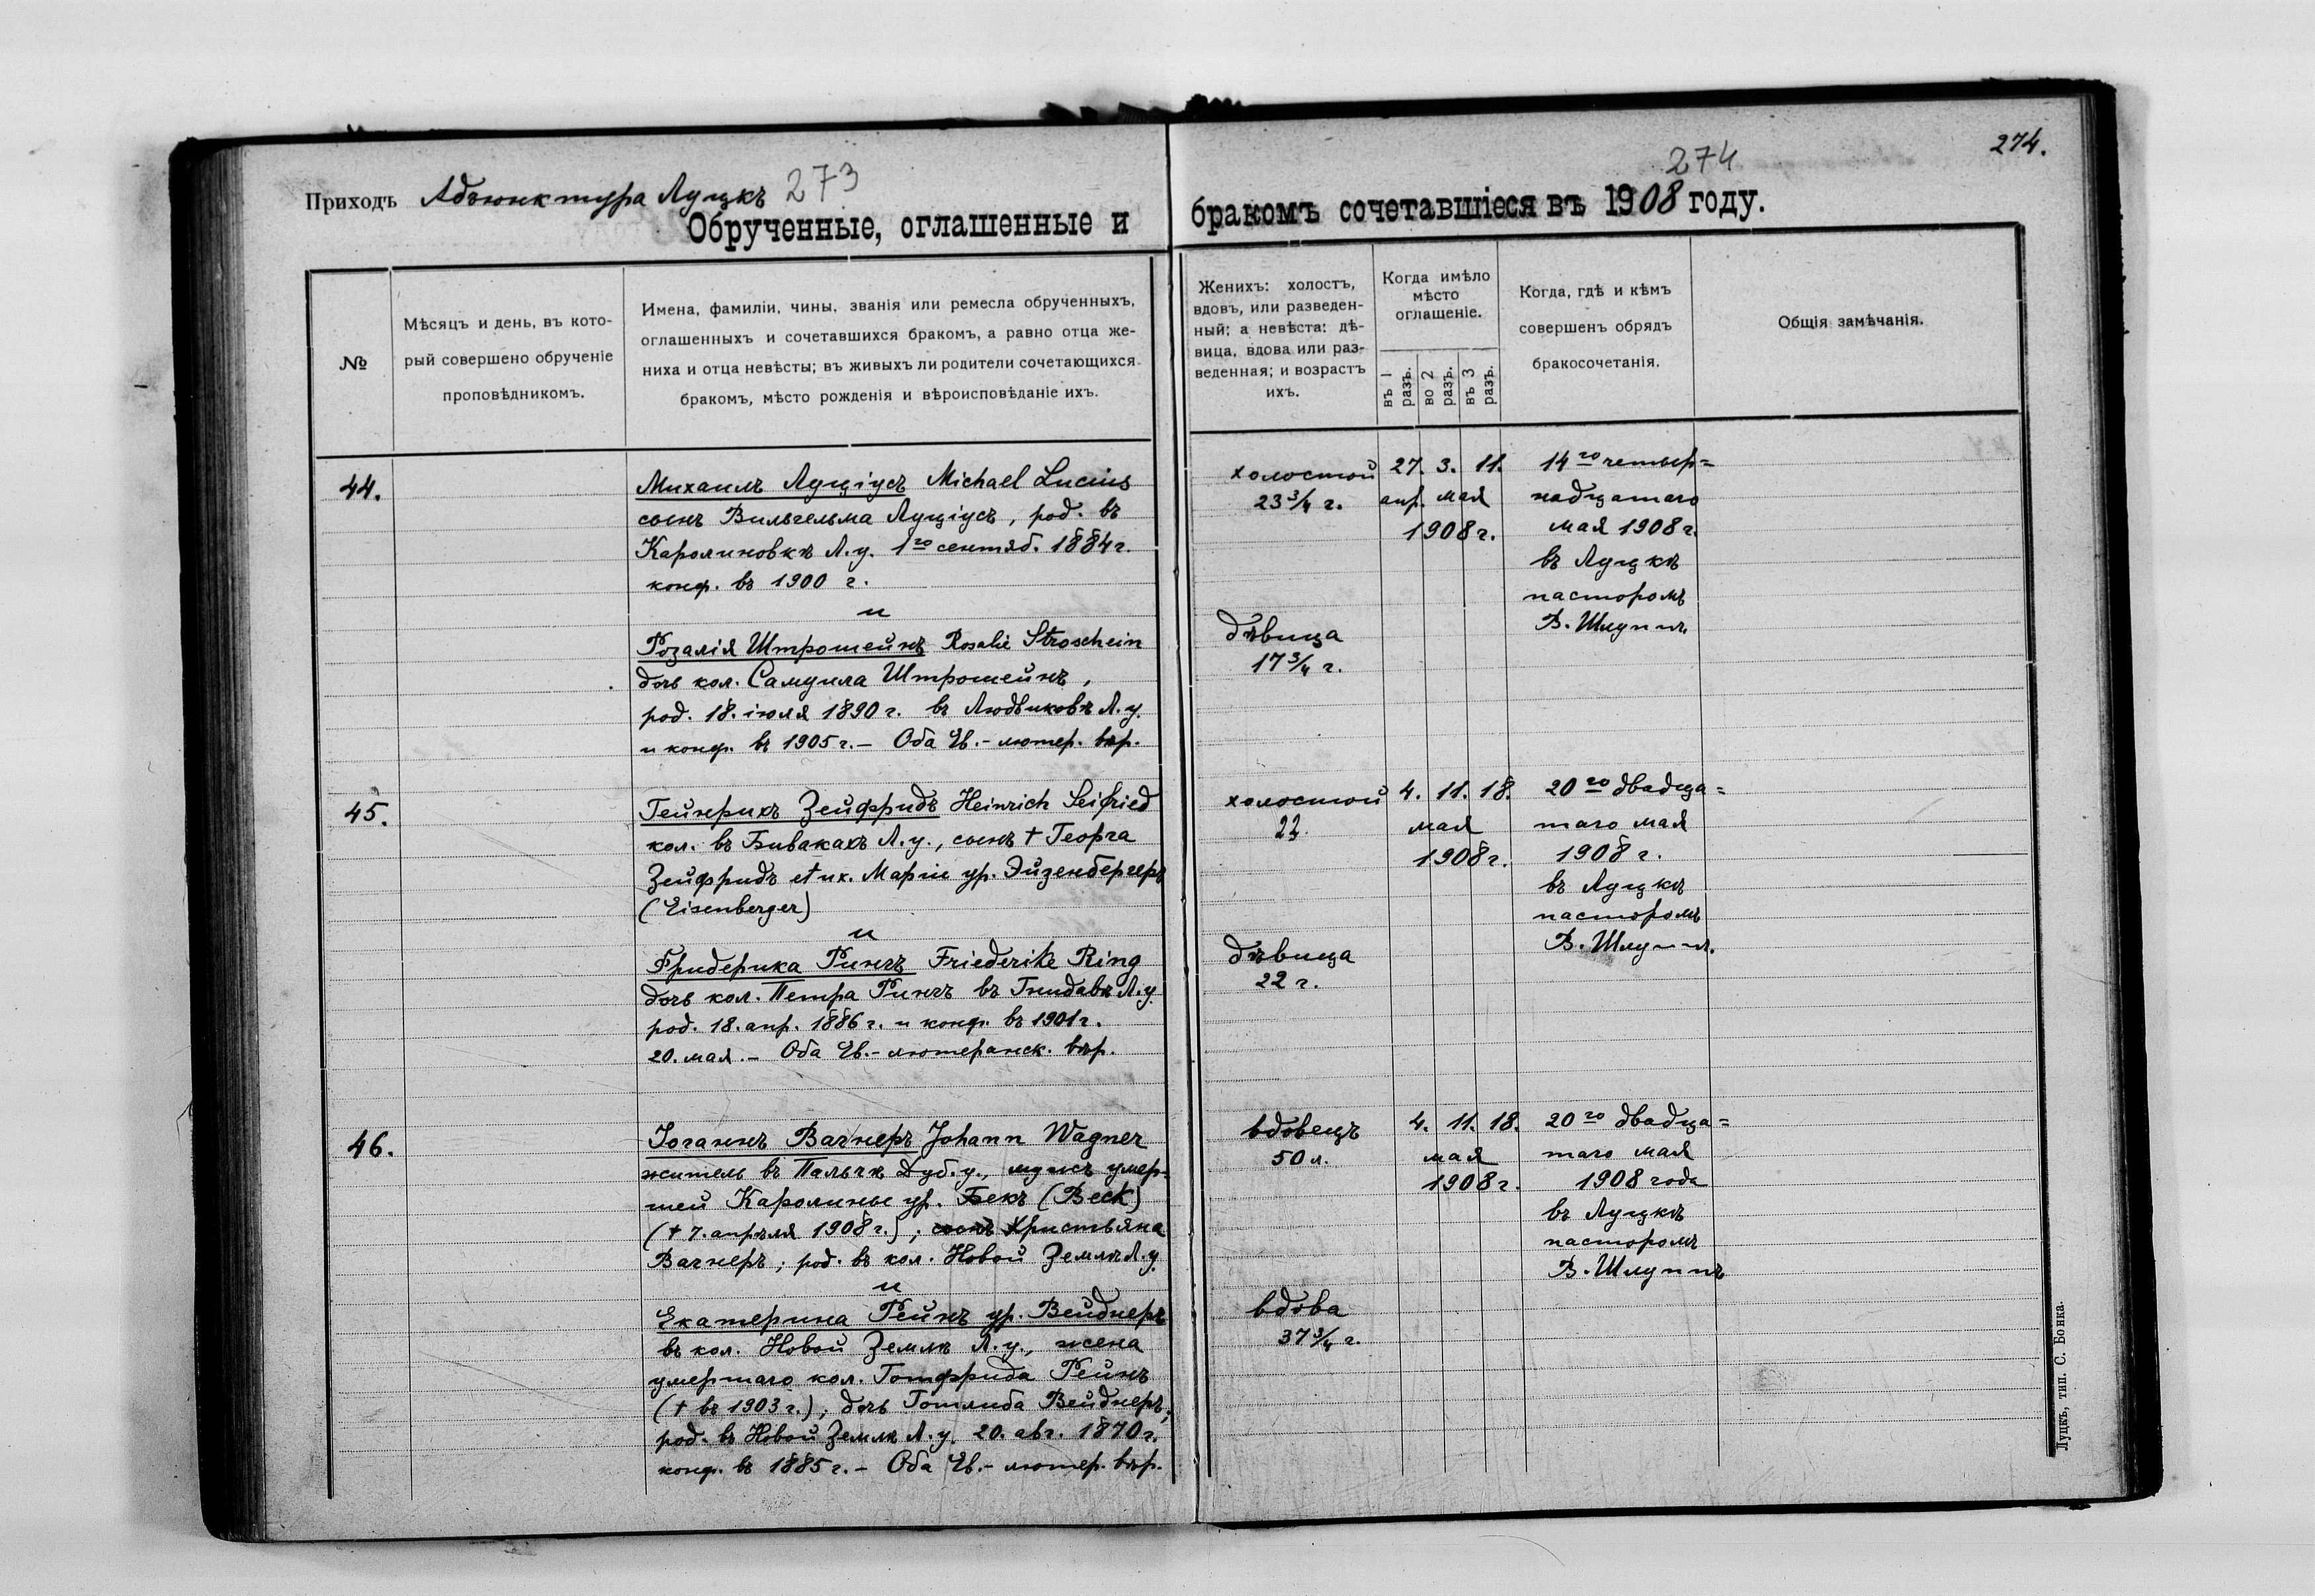 Приходъ Адъюнктура Луцкъ 273
Обрученные, оглашенные и
№
Мѣсяцъ и день, въ кото-
рый совершено обрученіе
проповѣдникомъ.
Имена, фамиліи, чины, званія или ремесла обрученныхъ,
оглашенныхъ и сочетавшихся бракомъ, а равно отца же-
ниха и отца невѣсты; въ живыхъ ли родители сочетающихся
бракомъ, мѣсто рожденія и вѣроисповѣданіе ихъ.
44.
Михаилъ Луціусъ Michael Lucius
сынъ Вильгельма Луціусъ, род. въ
Каролиновкѣ Л.у. 1го сентяб. 1884 г.
конф. въ 1900 г.
и
Розалія Штрошейнъ Rosalie Stroschein
дочь кол. Самуила Штрошейнъ,
род. 18. іюля 1890 г. въ Людвиковѣ Л.у.
и конф. въ 1905 г. – Оба Ев.-лютер. вѣр.
45.
Гейнрихъ Зейфридъ Heinrich Seifried
кол. въ Бивакахъ Л.у., сынъ † Георга
Зейфридъ et ux. Маріи ур. Эйзенбергеръ
(Eisenberger)
и
Фридерика Рингъ Friederike Ring
дочь кол. Петра Рингъ въ Гнидавѣ Л.у.
род. 18. апр. 1886 г. и конф. въ 1901 г.
20. мая. – Оба Ев.-лютеранск. вѣр.
46.
Іоганнъ Вагнеръ Johann Wagner
житель въ Пальчѣ Дуб.у., мужъ умер-
шей Каролины ур. Бекъ (Beck)
(† 7. апрѣля 1908 г.); сынъ Христьяна
Вагнеръ; род. въ кол. Новой Землѣ Л.у.
и
Екатерина Рейнъ ур. Вейднеръ
въ кол. Новой Землѣ Л.у., жена
умершаго кол. Готфрида Рейнъ
(† въ 1903 г.); дочь Готлиба Вейднеръ;
род. въ Новой Землѣ Л.у. 20. авг. 1870 г.
конф. въ 1885 г. – Оба Ев.-лютер. вѣр.
274
274.
бракомъ сочетавшіеся въ 1908 году.
Женихъ: холостъ,
вдовъ, или разведен-
ный; а невѣста: дѣ-
вица, вдова или раз-
веденная; и возрастъ
ихъ.
Когда имѣло
мѣсто
оглашеніе.
въ 1 разъ.
во 2 разъ.
въ 3 разъ.
Когда, гдѣ и кѣмъ
совершенъ обрядъ
бракосочетанія.
Общія замѣчанія.
холостой
23 3/4 г.
27. 3. 11.
апр. мая
1908 г.
14го четыр=
надцатаго
мая 1908 г.
въ Луцкѣ
пасторомъ
В. Шлуппъ.
дѣвица
17 3/4 г.
холостой
22.
4. 11. 18.
мая
1908 г.
20го двадца=
таго мая
1908 г.
въ Луцкѣ
пасторомъ
В. Шлуппъ.
дѣвица
22 г.
вдовецъ
50 л.
4. 11. 18.
мая
1908 г.
20го двадца=
таго мая
1908 года
въ Луцкѣ
пасторомъ
В. Шлуппъ
вдова
37 3/4 г.
Луцкъ, тип. С. Бонка.